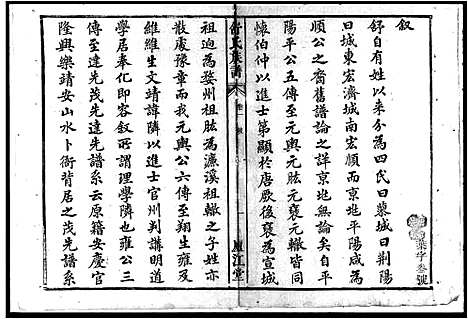 叙
舒自有姓以來分為四氏曰蓼城曰荆陽
曰城東宏濟城南宏順而京兆平陽咸為
順公之裔舊譜論之詳京兆無論矣自平
陽平公五傳至元輿元肱元褒元轍皆同
懷伯仲以進士第顯於唐厥後褒為宣城
祖迫為婺州祖肱為濂溪祖轍之子姓亦
散處豫章而我元輿公六傳至翔生雍及
維維生文靖諱隣以進士官州判講明道
學居奉化即容叙所謂理學隣也雍公三
傳至達先茂先達先譜系云原籍安慶官
隆興樂靖安山水卜衙背居之茂先譜系
舒氏族譜
卷一
叙
一
廬江堂
字叁號